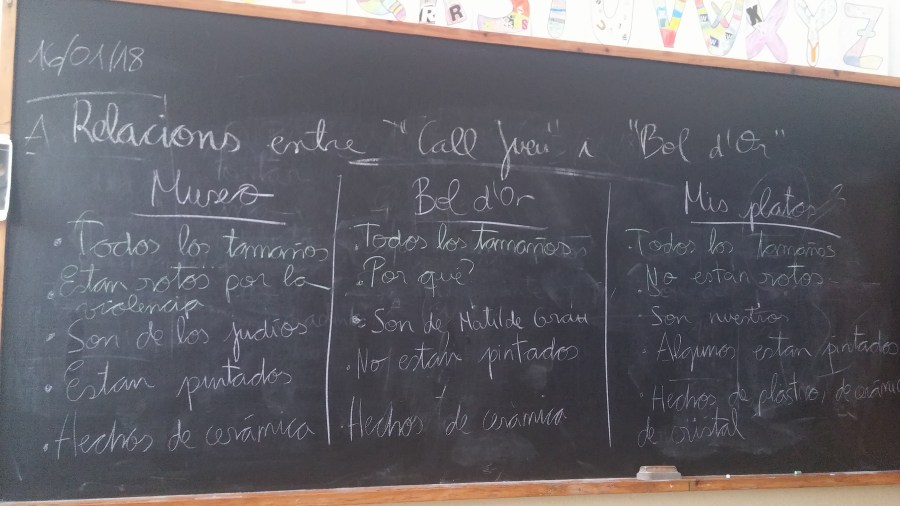 16/01/18
A Relacions entre "Call Jueu" i "Bol d'Or"
Museo
· Todos los tamaños
· Estan rotos por la
violencia
· Son de los judíos
· Estan pintados
· Hechos de cerámica
Bol d'Or
· Todos los tamaños
· Por qué?
· Son de Matilde Grau
· No estan pintados
· Hechos de cerámica
Mis platos
· Todos los tamaños
· No estan rotos
· Son nuestros
· Algunos estan pintados
· Hechos de plástico, de
de cristal
R
S
U
W
X
Y
Z